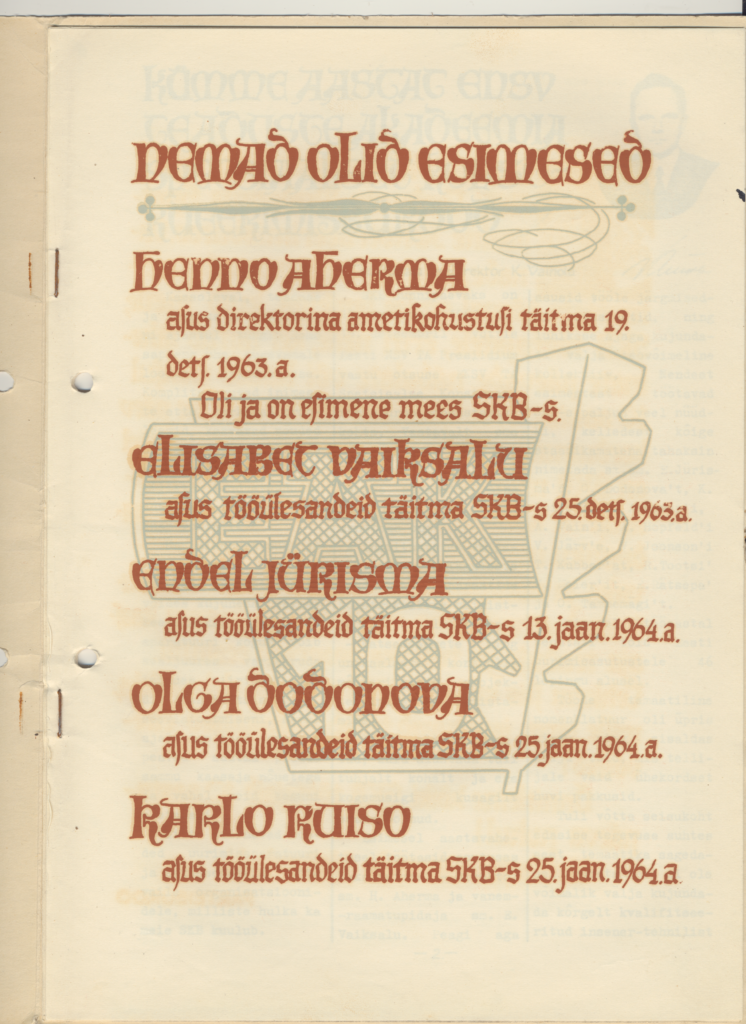 NEMAD OLID ESIMESED
HENNO AHERMA
asus direktorina ametikohustusi täitma 19.
dets. 1963.a.
Oli ja on esimene mees SKB-s.
ELISABET VAIKSALU
asus tööülesandeid täitma SKB-s 25.dets. 1963.a.
ENDEL JÜRISMA
asus tööülesandeid täitma SKB-s 13.jaan.1964.a.
OLGA DODONOVA
asus tööülesandeid täitma SKB-s 25.jaan.1964.a.
KARLO RUISO
asus tööülesandeid täitma SKB-s 25.jaan.1964.a